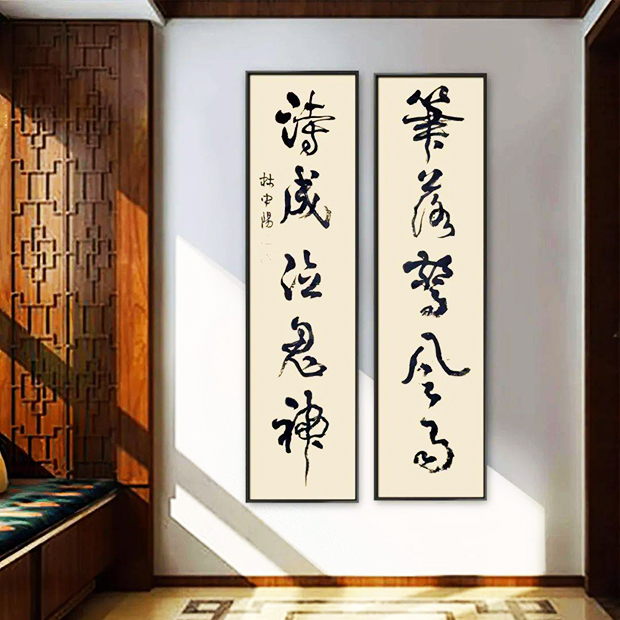 筆落驚風雨
詩成泣鬼神
林中陽